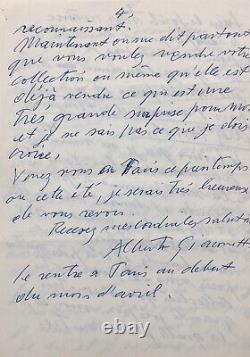 4,
reconnaissant.
Maintenant on me dit partout
que vous voulez vendre votre
collection ou même qu'elle est
déjà vendue ce qui est une
très grande surprise pour moi
et je ne sais pas ce que je dois
croire,
Venez vous à Paris ce printemps
ou cette été, je serais très heureux
de vous revoir.
Recevez mes cordiales salutations
Alberto Giacometti
Je rentre à Paris au début
du mois d'avril.